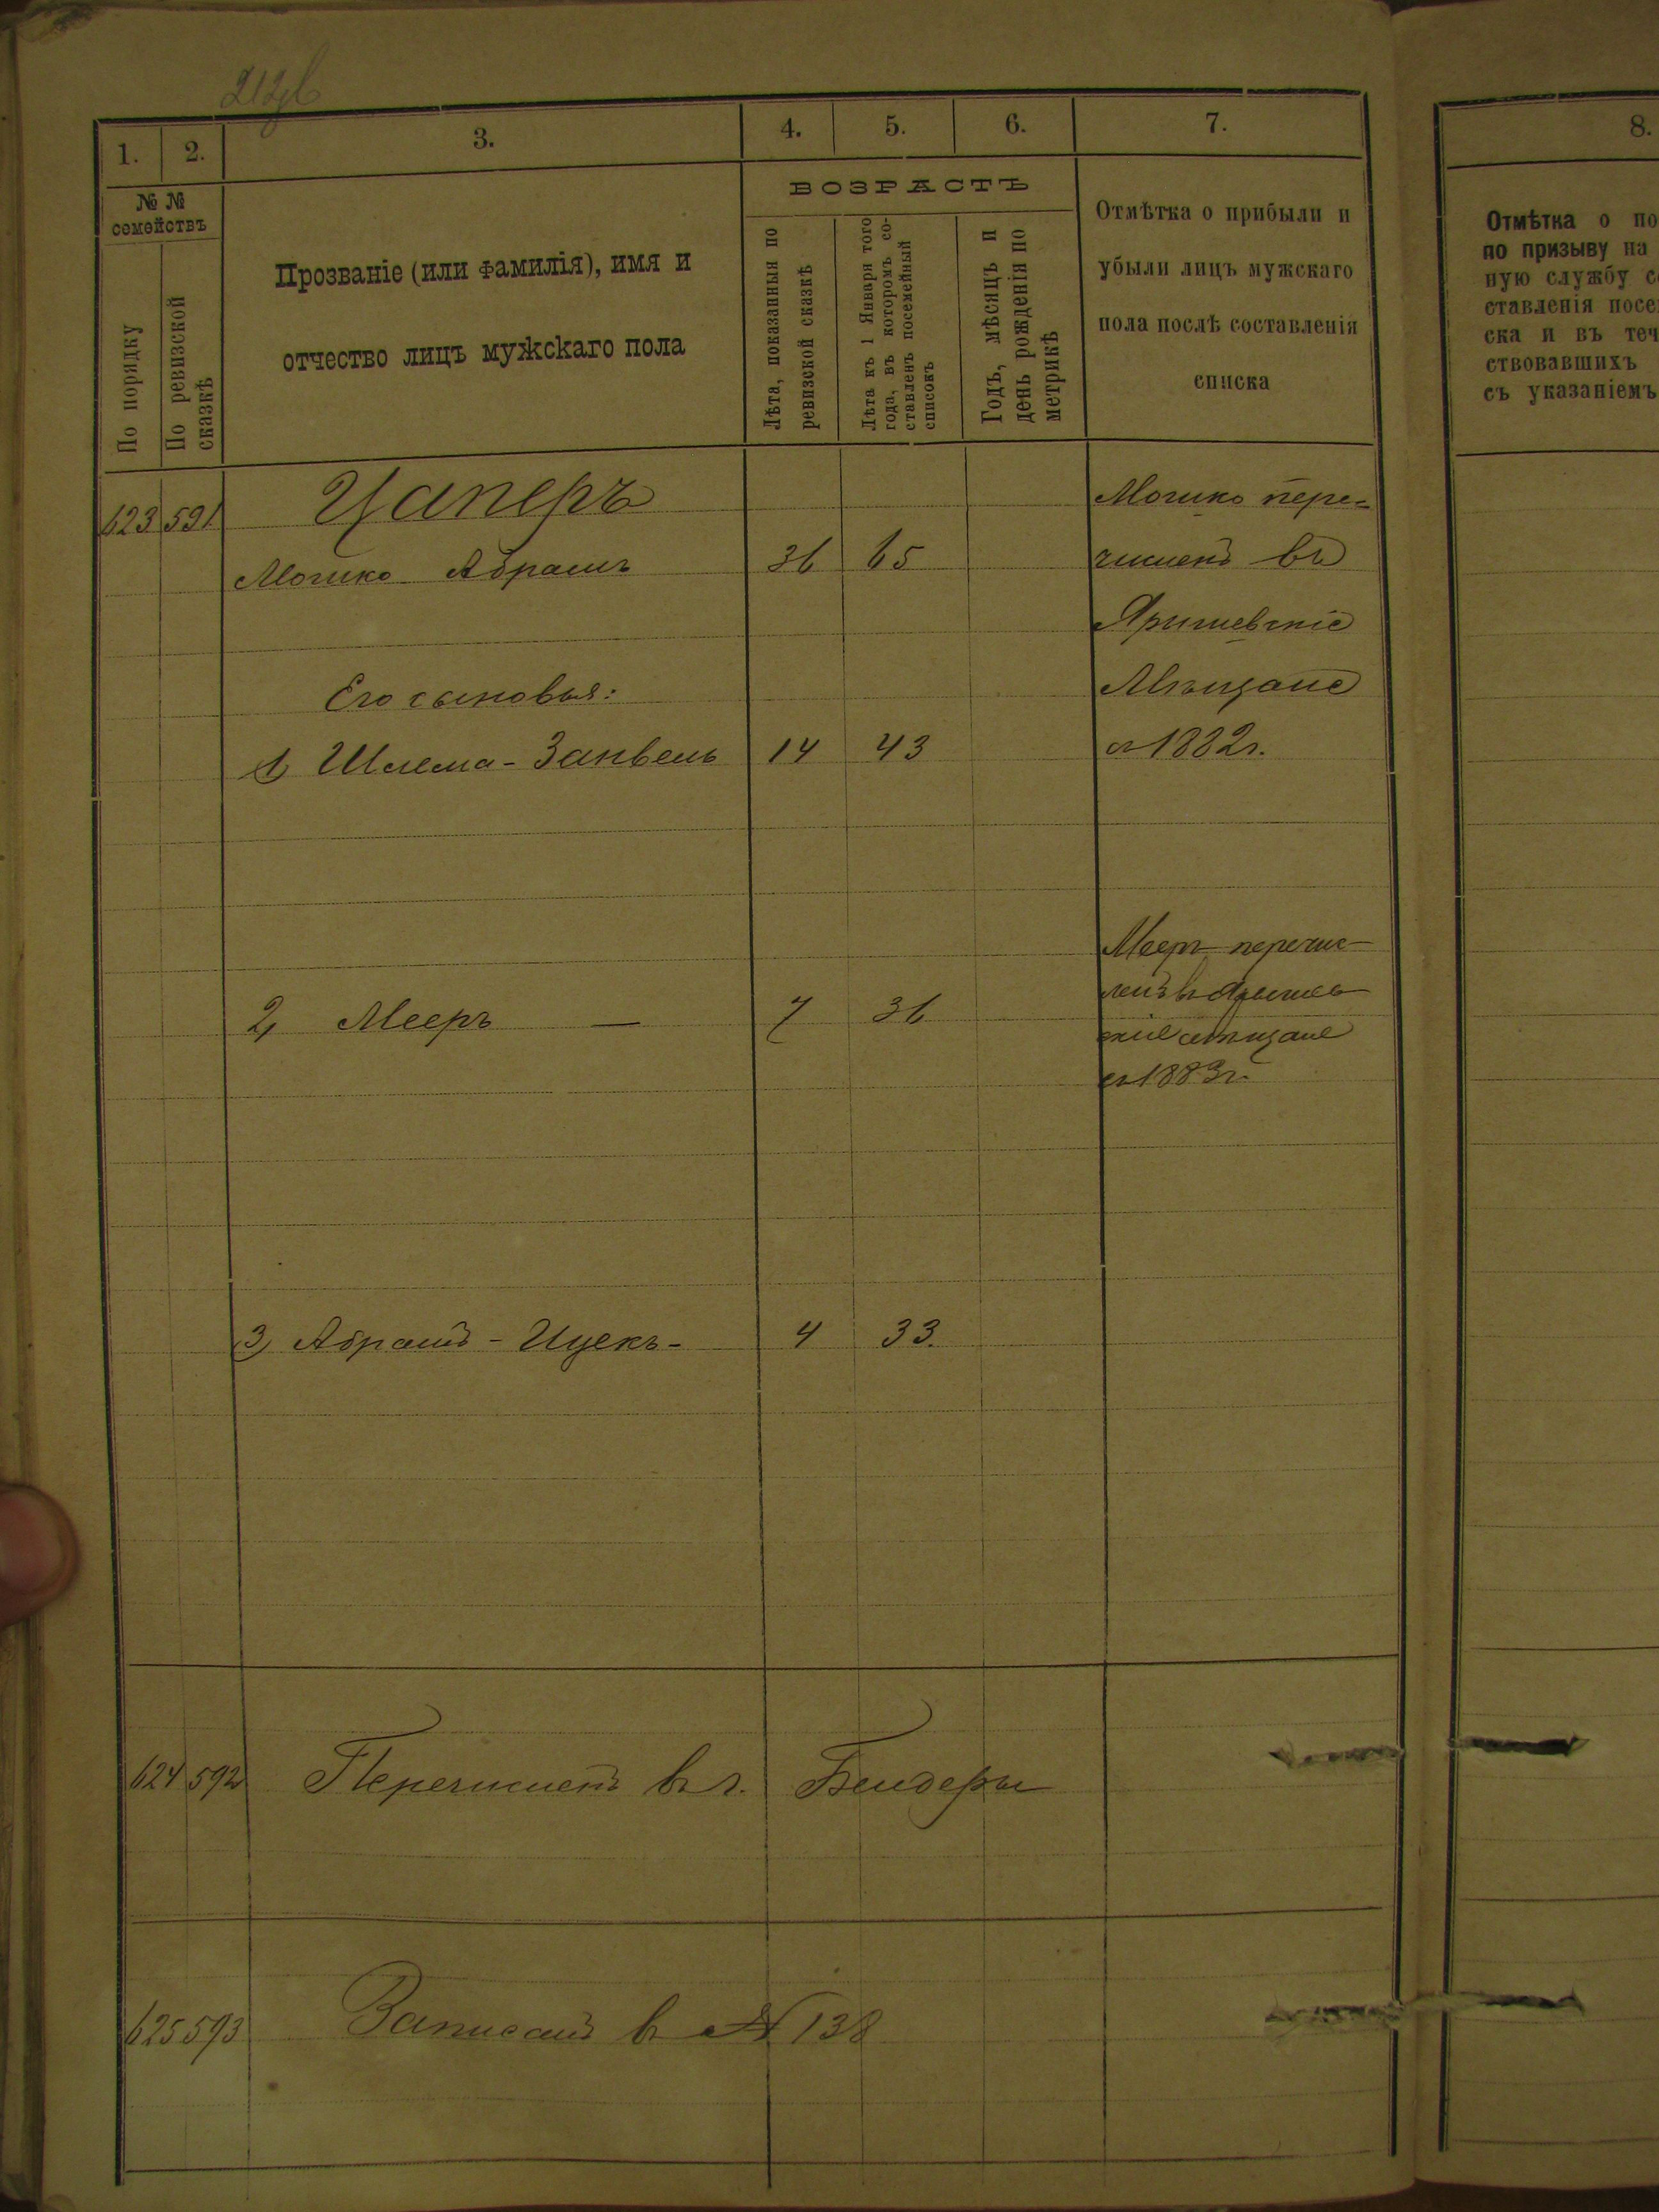 212об
1. 2. 3. 4. 5. 6. 7.
№ №
семействъ
По порядку
По ревизской
сказкѣ
Прозваніе (или фамилія), имя и
отчество лицъ мужскаго пола
ВОЗРАСТЪ
Лѣта, показанныя по
ревизской сказкѣ
Лѣта къ 1 Января того
года, въ которомъ со-
ставленъ посемейный
списокъ
Годъ, мѣсяцъ и
день рожденія по
метрикѣ
Отмѣтка о прибыли и
убыли лицъ мужскаго
пола послѣ составленія
списка
623 591 Цаперъ
Мошко Абрамъ 36 65
Его сыновья:
1) Шлема-Занвель 14 43
Мошко пере-
численъ въ
Яришевскіе
Мѣщане
съ 1882 г.
2, Мееръ — 7 36
Мееръ перечис-
ленъ въ Яришев
скіе мѣщане
съ 1883 г.
3) Абрамъ - Ицекъ - 4 33.
624 592 Перечисленъ въ г. Бендеры
625 593 Записанъ въ № 138
8.
Отмѣтка о по
по призыву на
ную службу с
ставленія посе
ска и въ теч
ствовавшихъ
съ указаніемъ